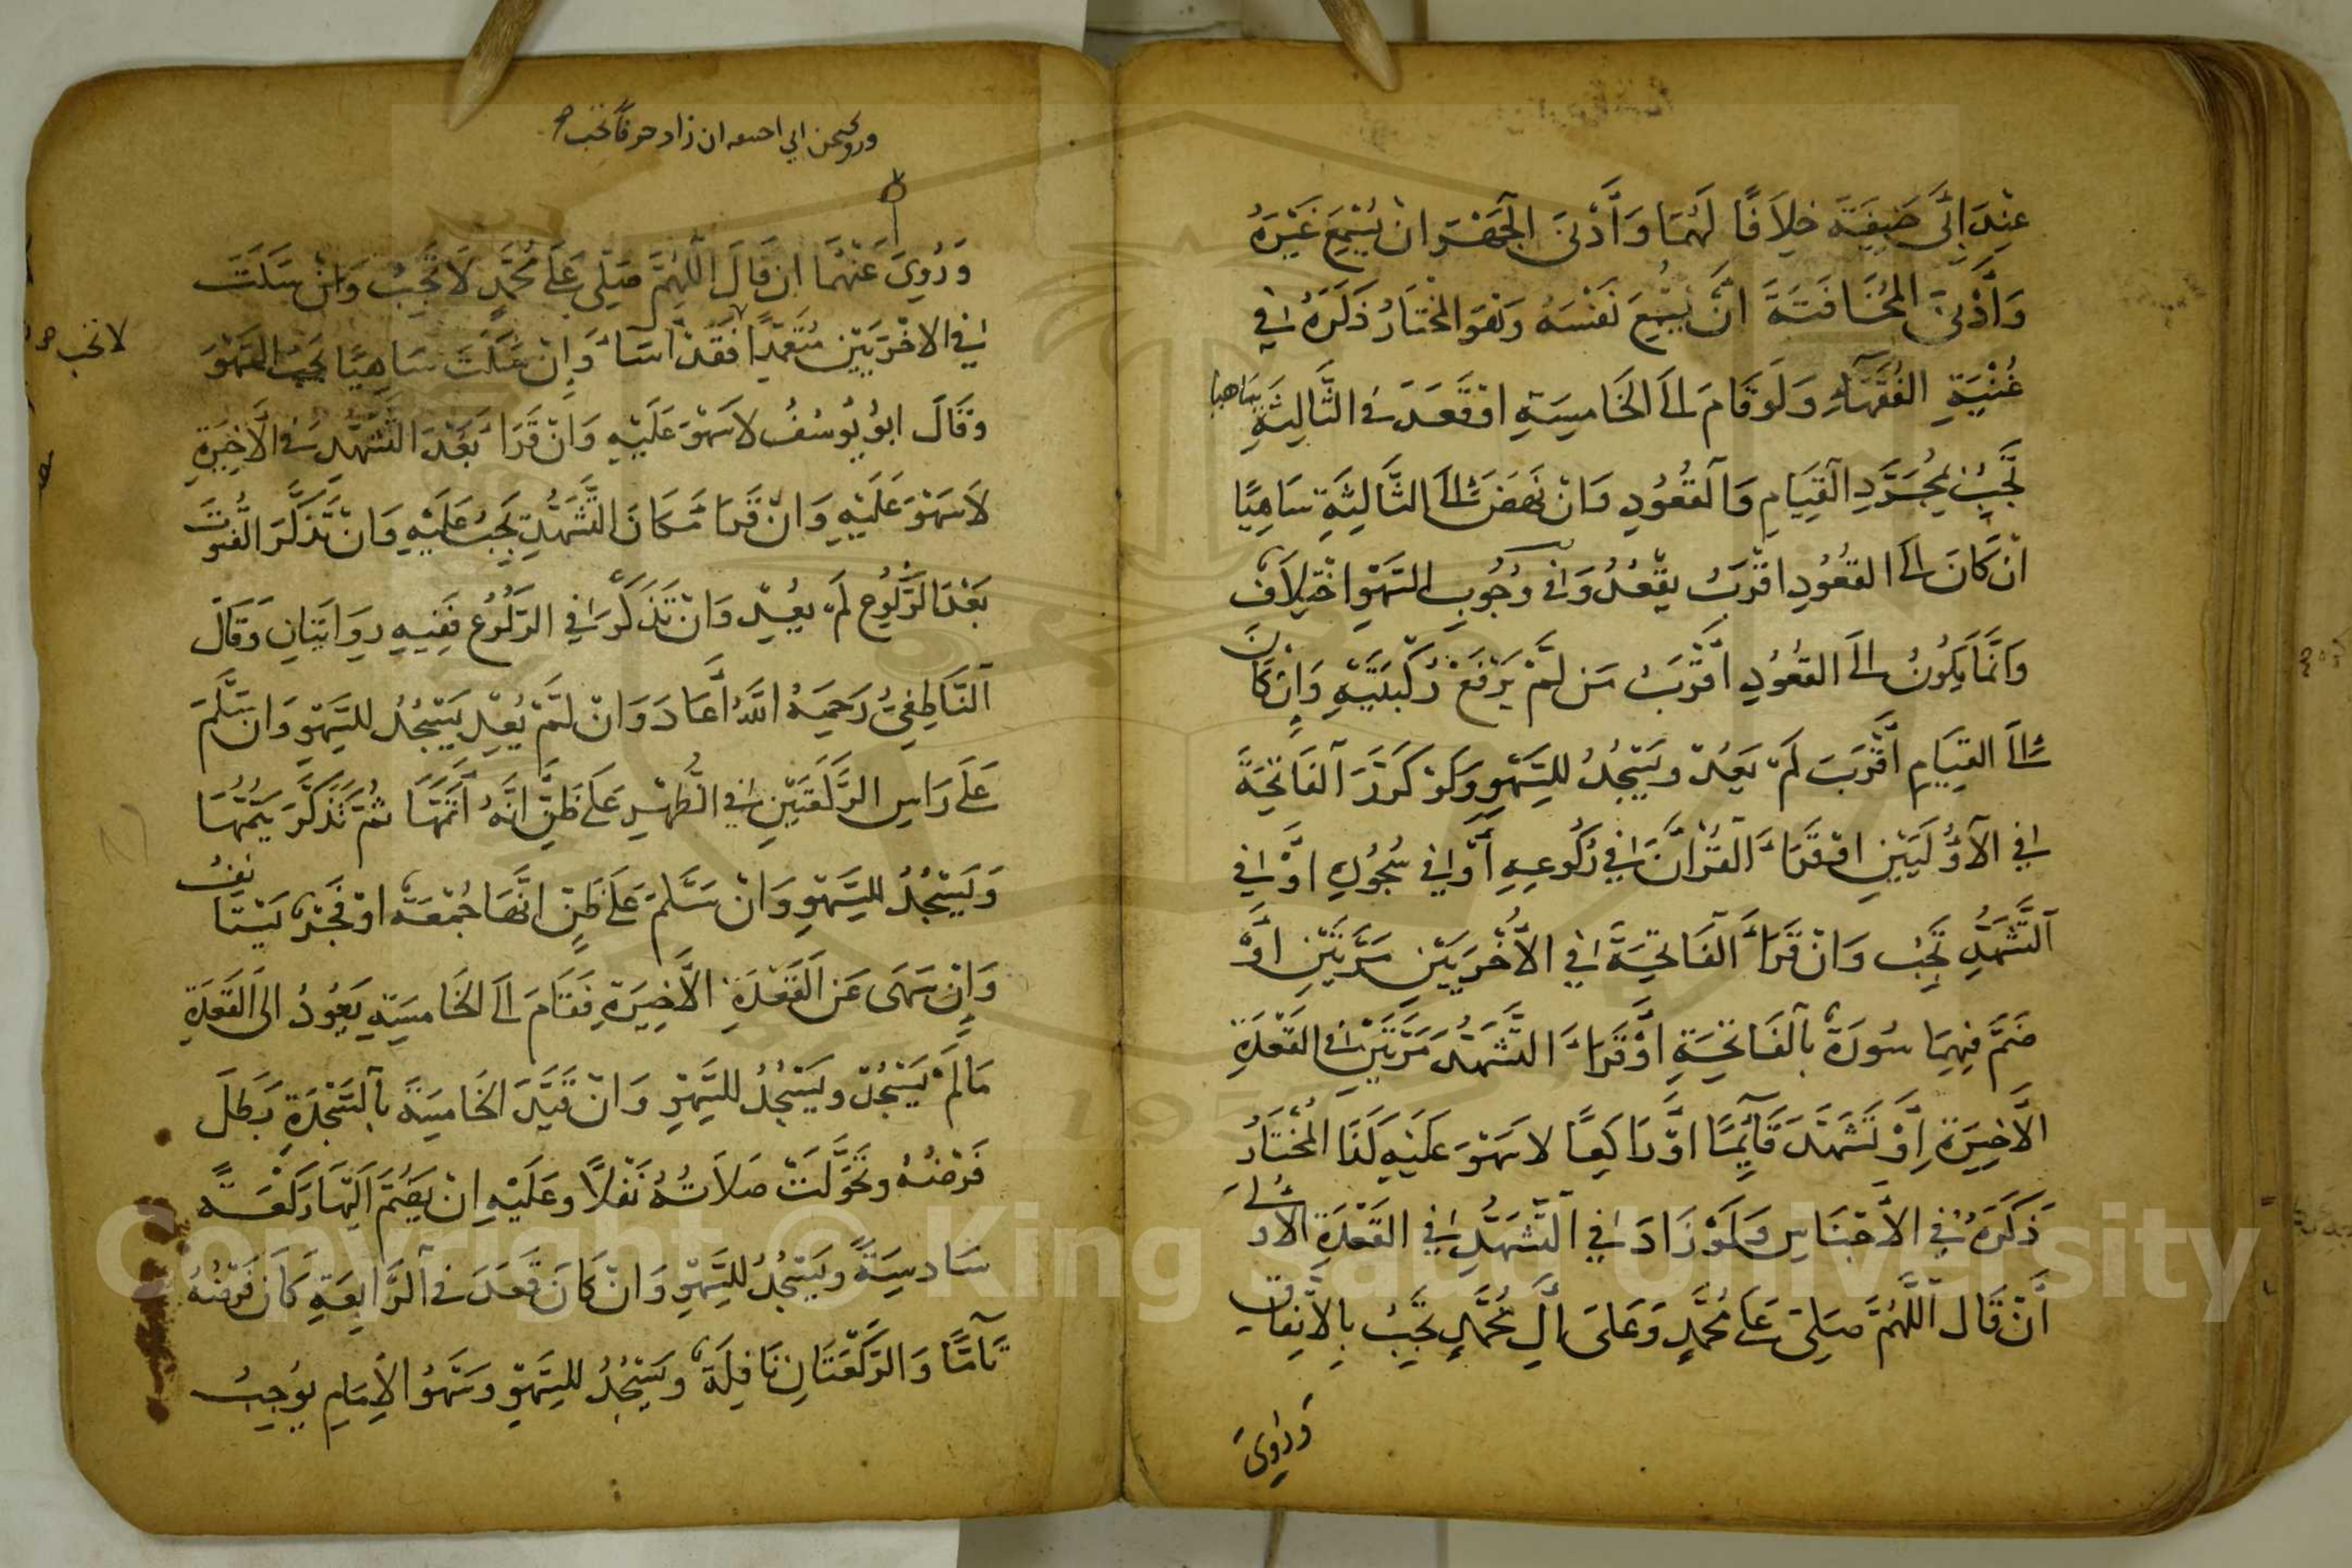 عِنْدَ اَبِي حَنِيفَةَ خِلَافًا لَهُمَا وَاَدْنَى الْجَهْرِ اَنْ يُسْمِعَ غَيْرَهُ
وَاَدْنَى الْمُخَافَتَةِ اَنْ يُسْمِعَ نَفْسَهُ وَهُوَ الْمُخْتَارُ ذَكَرَهُ فِي
غُنْيَةِ الْفُقَهَاءِ وَلَوْ قَامَ اِلَى الْخَامِسَةِ اَوْ قَعَدَ فِي الثَّالِثَةِ سَاهِيا
تَجِبُ بِمُجَرَّدِ الْقِيَامِ وَالْقُعُودِ وَاِنْ نَهَضَ اِلَى الثَّالِثَةِ سَاهِيًا
اِنْ كَانَ اِلَى الْقُعُودِ اَقْرَبَ يَقْعُدُ وَفِي وُجُوبِ السَّهْوِ اخْتِلَافٌ
وَاِنَّمَا يَكُونُ اِلَى الْقُعُودِ اَقْرَبَ مَنْ لَمْ يَرْفَعْ رُكْبَتَيْهِ وَاِنْ كَانَ
اِلَى الْقِيَامِ اَقْرَبَ لَمْ يَعُدْ وَيَسْجُدُ لِلسَّهْوِ وَلَوْ كَرَّرَ الْفَاتِحَةَ
فِي الْاُولَيَيْنِ اَوْ قَرَاَ الْقُرْاٰنَ فِي رُكُوعِهِ اَوْ فِي سُجُودِهِ اَوْ فِي
التَّشَهُّدِ تَجِبُ وَاِنْ قَرَاَ الْفَاتِحَةَ فِي الْاُخْرَيَيْنِ مَرَّتَيْنِ اَوْ
ضَمَّ فِيهِمَا سُورَةً بِالْفَاتِحَةِ اَوْ قَرَاَ التَّشَهُّدَ مَرَّتَيْنِ فِي الْقَعْدَةِ
الْاَخِيرَةِ اَوْ تَشَهَّدَ قَائِمًا اَوْ رَاكِعًا لَا سَهْوَ عَلَيْهِ كَذَا الْمُخْتَارُ
ذَكَرَهُ فِي الْاَجْنَاسِ وَلَوْ زَادَ فِي التَّشَهُّدِ فِي الْقَعْدَةِ الْاُولَى
اَنْ قَالَ اَللّٰهُمَّ صَلِّ عَلَى مُحَمَّدٍ وَعَلَى اٰلِ مُحَمَّدٍ تَجِبُ بِالْاِتِّفَاقِ
وَرُوِيَ
وروي عن ابي ان زاد حرفا تجب
وَرُوِيَ عَنْهُمَا اِنْ قَالَ اَللّٰهُمَّ صَلِّ عَلَى مُحَمَّدٍ لَا تَجِبُ وَاِنْ سَكَتَ
فِي الْاُخْرَيَيْنِ مُتَعَمِّدًا فَقَدْ اَسَاءَ وَاِنْ سَكَتَ سَاهِيًا يَجِبُ السَّهْوُ
لا تجب
وَقَالَ اَبُو يُوسُفُ لَا سَهْوَ عَلَيْهِ وَاِنْ قَرَاَ بَعْدَ التَّشَهُّدِ فِي الْاَخِيرَةِ
لَا سَهْوَ عَلَيْهِ وَاِنْ قَرَا مَكَانَ التَّشَهُّدِ يَجِبُ عَلَيْهِ وَاِنْ تَذَكَّرَ الْقُنُوتَ
بَعْدَ الرُّكُوعِ لَمْ يُعِدْ وَاِنْ تَذَكَّرَ فِي الرُّكُوعِ فَفِيهِ رِوَايَتَانِ وَقَالَ
النَّاطِفِيُّ رَحِمَهُ اللّٰهُ اَعَادَ وَاِنْ لَمْ يُعِدْ يَسْجُدُ لِلسَّهْوِ وَاِنْ سَلَّمَ
عَلَى رَاسِ الرَّكْعَتَيْنِ فِي الظُّهْرِ عَلَى ظَنِّ اَنَّهُ اَتَمَّهَا ثُمَّ تَذَكَّرَ يُتِمُّهَا
وَيَسْجُدُ لِلسَّهْوِ وَاِنْ سَلَّمَ عَلَى ظَنِّ اَنَّهَا جُمْعَةٌ اَوْ فَجْرٌ يَسْتَانِفُ
وَاِنْ سَهَى عَنِ الْقَعْدَةِ الْاَخِيرَةِ فَقَامَ اِلَى الْخَامِسَةِ يَعُودُ اِلَى الْقَعْدَةِ
مَا لَمْ يَسْجُدْ وَيَسْجُدُ لِلسَّهْوِ وَاِنْ قَيَّدَ الْخَامِسَةَ بِالسَّجْدَةِ بَطَلَ
فَرْضُهُ وَتَحَوَّلَتْ صَلَاتُهُ نَفْلًا وَعَلَيْهِ اَنْ يَضُمَّ اِلَيْهَا رَكْعَةً
سَادِسَةً وَيَسْجُدُ لِلسَّهْوِ وَاِنْ كَانَ قَعَدَ فِي الرَّابِعَةِ كَانَ فَرْضُهُ
تَامًّا وَالرَّكْعَتَانِ نَافِلَةً وَيَسْجُدُ لِلسَّهْوِ وَسَهْوُ الْاِمَامِ يُوجِبُ
Copyright © King Saud University
1957